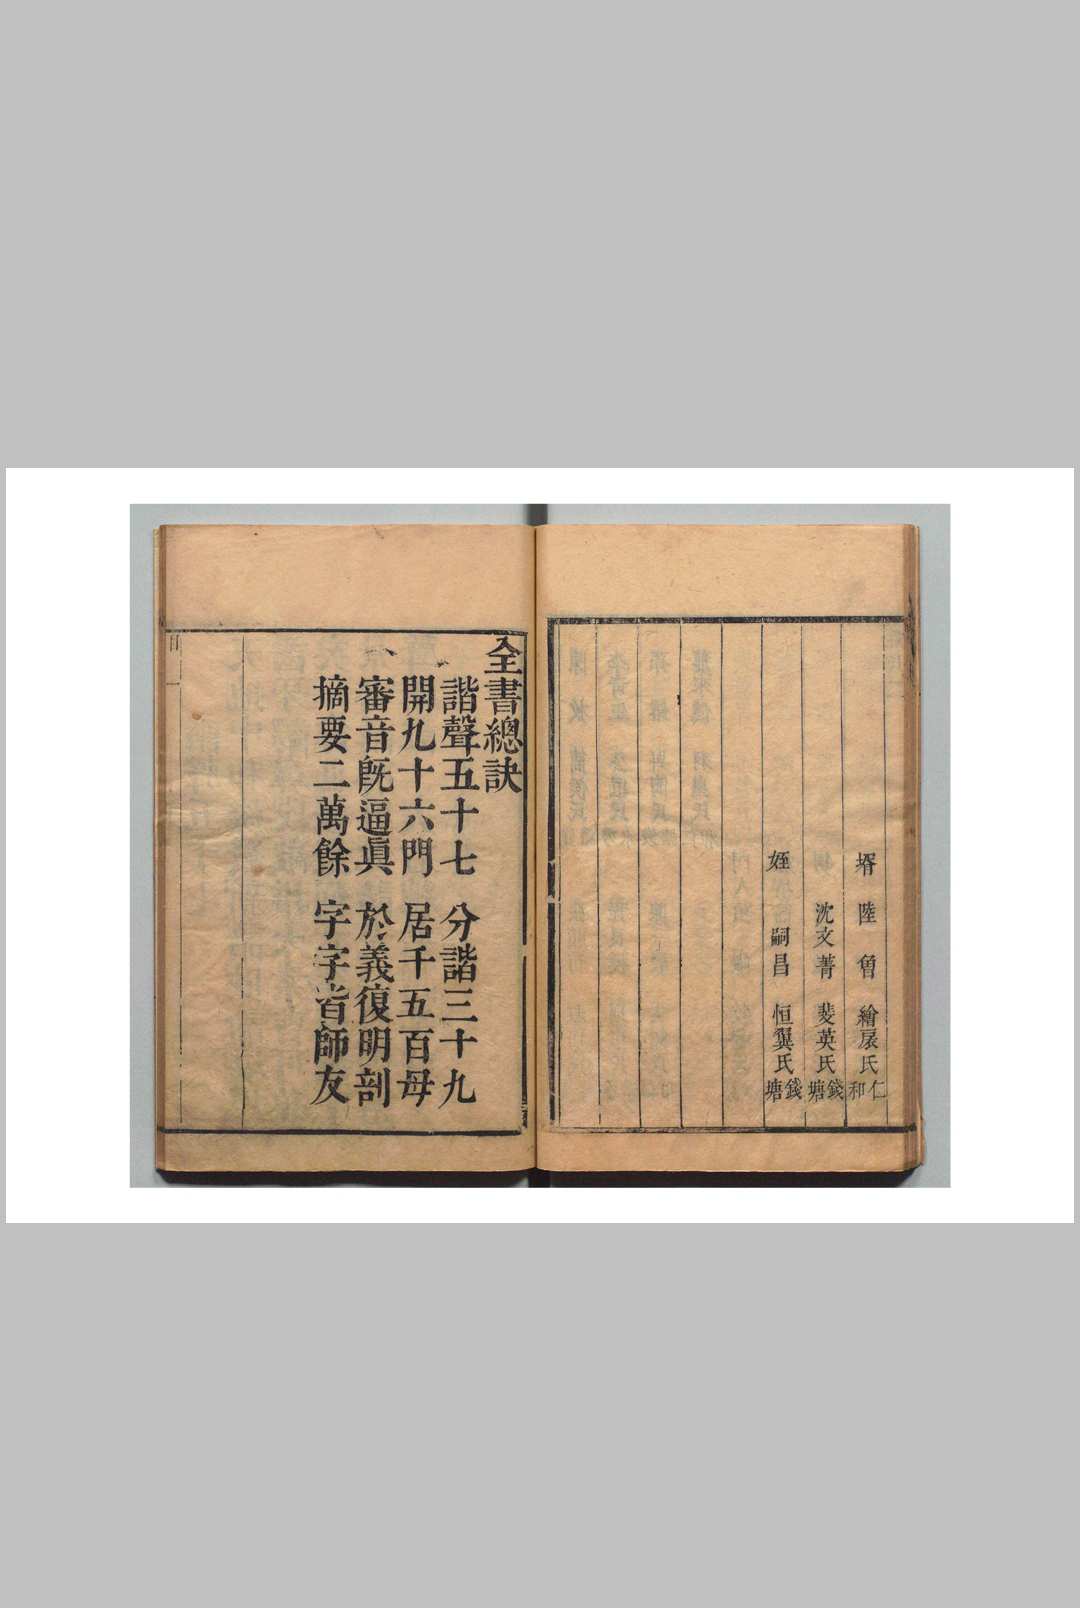 壻 陸 曾 繪扆氏 仁和
沈文菁 斐英氏 錢塘
姪 嗣昌 恒巽氏 錢塘
全書總訣
諧聲五十七 分諧三十九
開九十六門 居千五百母
審音旣逼眞 於義復明剖
摘要二萬餘 字字皆師友